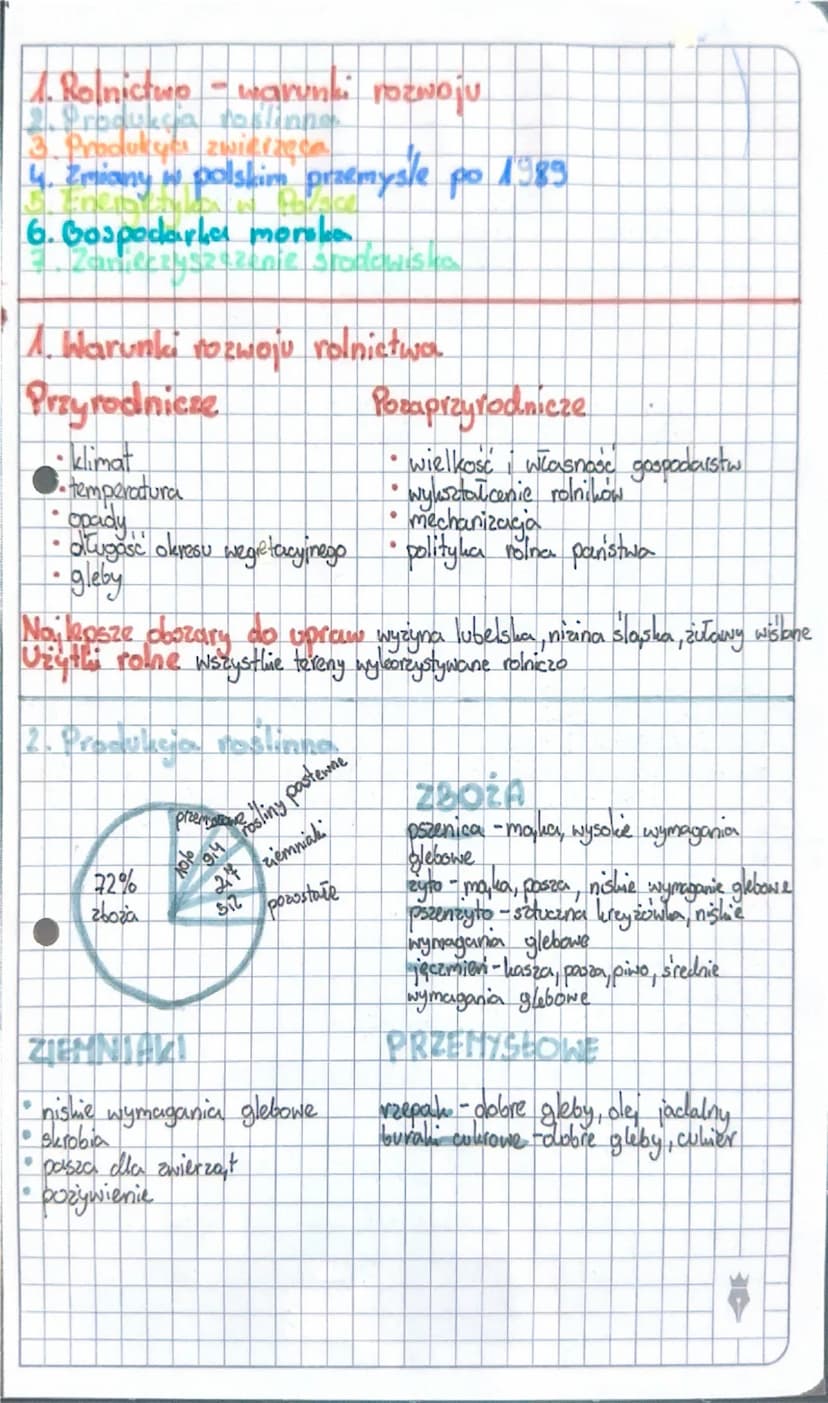 1. Rolnictwo - warunki rozwoju
2. Produkcja roślinna
3. Produkcja zwierzęca
4. Zmiany w polskim przemyśle po 1989
5. Energetyka w Polsce
6. Gospodarka morska
7. Zanieczyszczenie środowiska
1. Warunki rozwoju rolnictwa
Przyrodnicze
• klimat
• temperatura
• opady
• długość okresu wegetacyjnego
• gleby
Pozaprzyrodnicze
• wielkość i własność gospodarstw
• wykształcenie rolników
• mechanizacja
• polityka rolna państwa
Najlepsze obszary do upraw wyżyna lubelska, nizina śląska, żuławy wiślane
Użytki rolne wszystkie tereny wykorzystywane rolniczo
2. Produkcja roślinna
72%
zboża
przemysłowe
10%
rośliny pastewne
9,4
ziemniaki
2,7
pozostałe
5,2
ZBOŻA
pszenica - mąka, wysokie wymagania
glebowe
żyto - mąka, pasza, niskie wymaganie glebowe
pszenżyto - sztuczna krzyżówka, niskie
wymagania glebowe
jęczmień - kasza, pasza, piwo, średnie
wymagania glebowe
ZIEMNIAKI
• niskie wymagania glebowe
• skrobia
• pasza dla zwierząt
• pożywienie
PRZEMYSŁOWE
rzepak - dobre gleby, olej jadalny
buraki cukrowe - dobre gleby, cukier